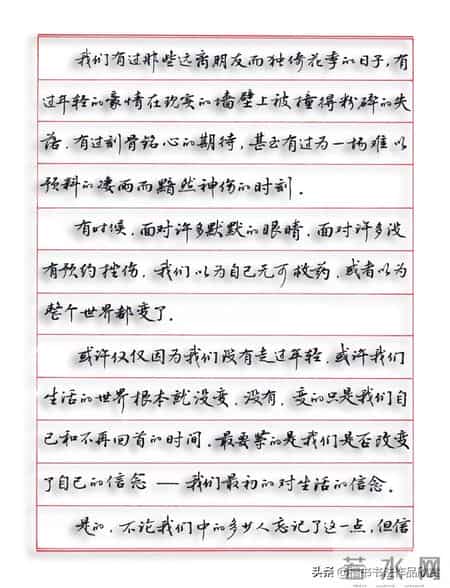 我们有过那些远离朋友而独倚花季的日子，有
过年轻的豪情在现实的墙壁上被撞得粉碎的失
落，有过刻骨铭心的期待，甚至有过为一场难以
预料的凄雨而黯然神伤的时刻。
有时候，面对许多默默的眼睛，面对许多没
有预约挫伤，我们以为自己无可救药，或者以为
整个世界都变了。
或许仅仅因为我们没有走过年轻，或许我们
生活的世界根本就没变，没有，变的只是我们自
己和不再回首的时间，最要紧的是我们是否改变
了自己的信念——我们最初的对生活的信念。
是的，不论我们中的多少人忘记了这一点，但信
头条
若水网